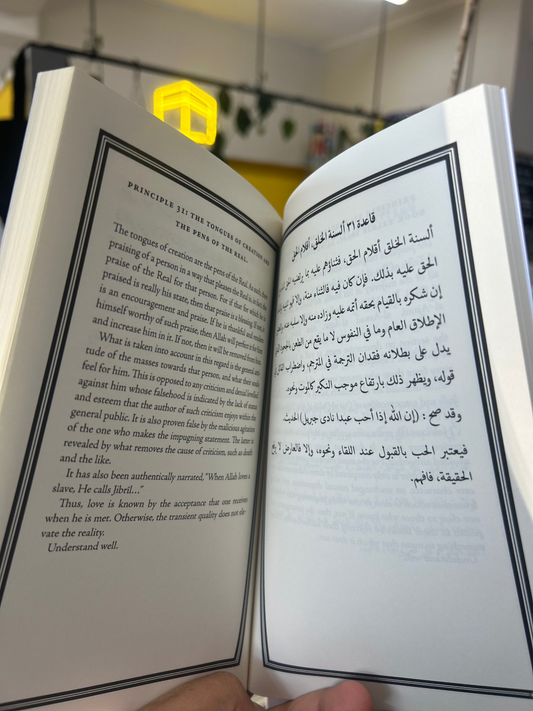 PRINCIPLE 31: THE TONGUES OF CREATION ARE
THE PENS OF THE REAL.
The tongues of creation are the pens of the Real. As such, their
praising of a person in a way that pleases the Real is in fact the
praise of the Real for that person. For if that for which he is
praised is really his state, then that praise is a blessing. If not, it
is an encouragement and praise. If he is thankful and renders
himself worthy of such praise, then Allah will perfect it for him
and increase him in it. If not, then it will be removed from him.
What is taken into account in this regard is the general atti-
tude of the masses towards that person, and what their souls
feel for him. This is opposed to any criticism and denial levelled
against him whose falsehood is indicated by the lack of status
and esteem that the author of such criticism enjoys within the
general public. It is also proven false by the malicious agitation
of the one who makes the impugning statement. The latter is
revealed by what removes the cause of criticism, such as death
and the like.
It has also been authentically narrated, “When Allah loves a
slave, He calls Jibril…”
Thus, love is known by the acceptance that one receives
when he is met. Otherwise, the transient quality does not ele-
vate the reality.
Understand well.
قاعدة ٣١ ألسنة الخلق، أقلام الحق
ألسنة الخلق أقلام الحق، فثناؤهم عليه بما يرضيه
الحق عليه بذلك. فإن كان فيه فالثناء منة، وإلا فهو
إن شكره بالقيام بحقه أتمه عليه وزاده منه وإلا سلبه عنه،
الإطلاق العام وما في النفوس لا ما يقع من الطعن والجحود
يدل على بطلانه فقدان الترجمة في المترجم، واضطراب القائل في
قوله، ويظهر ذلك بارتفاع موجب النكير كالموت ونحوه.
وقد صح : (إن الله إذا أحب عبدا نادى جبريل) الحديث.
فيعتبر الحب بالقبول عند اللقاء ونحوه، وإلا فالعارض لا يرفع
الحقيقة، فافهم.